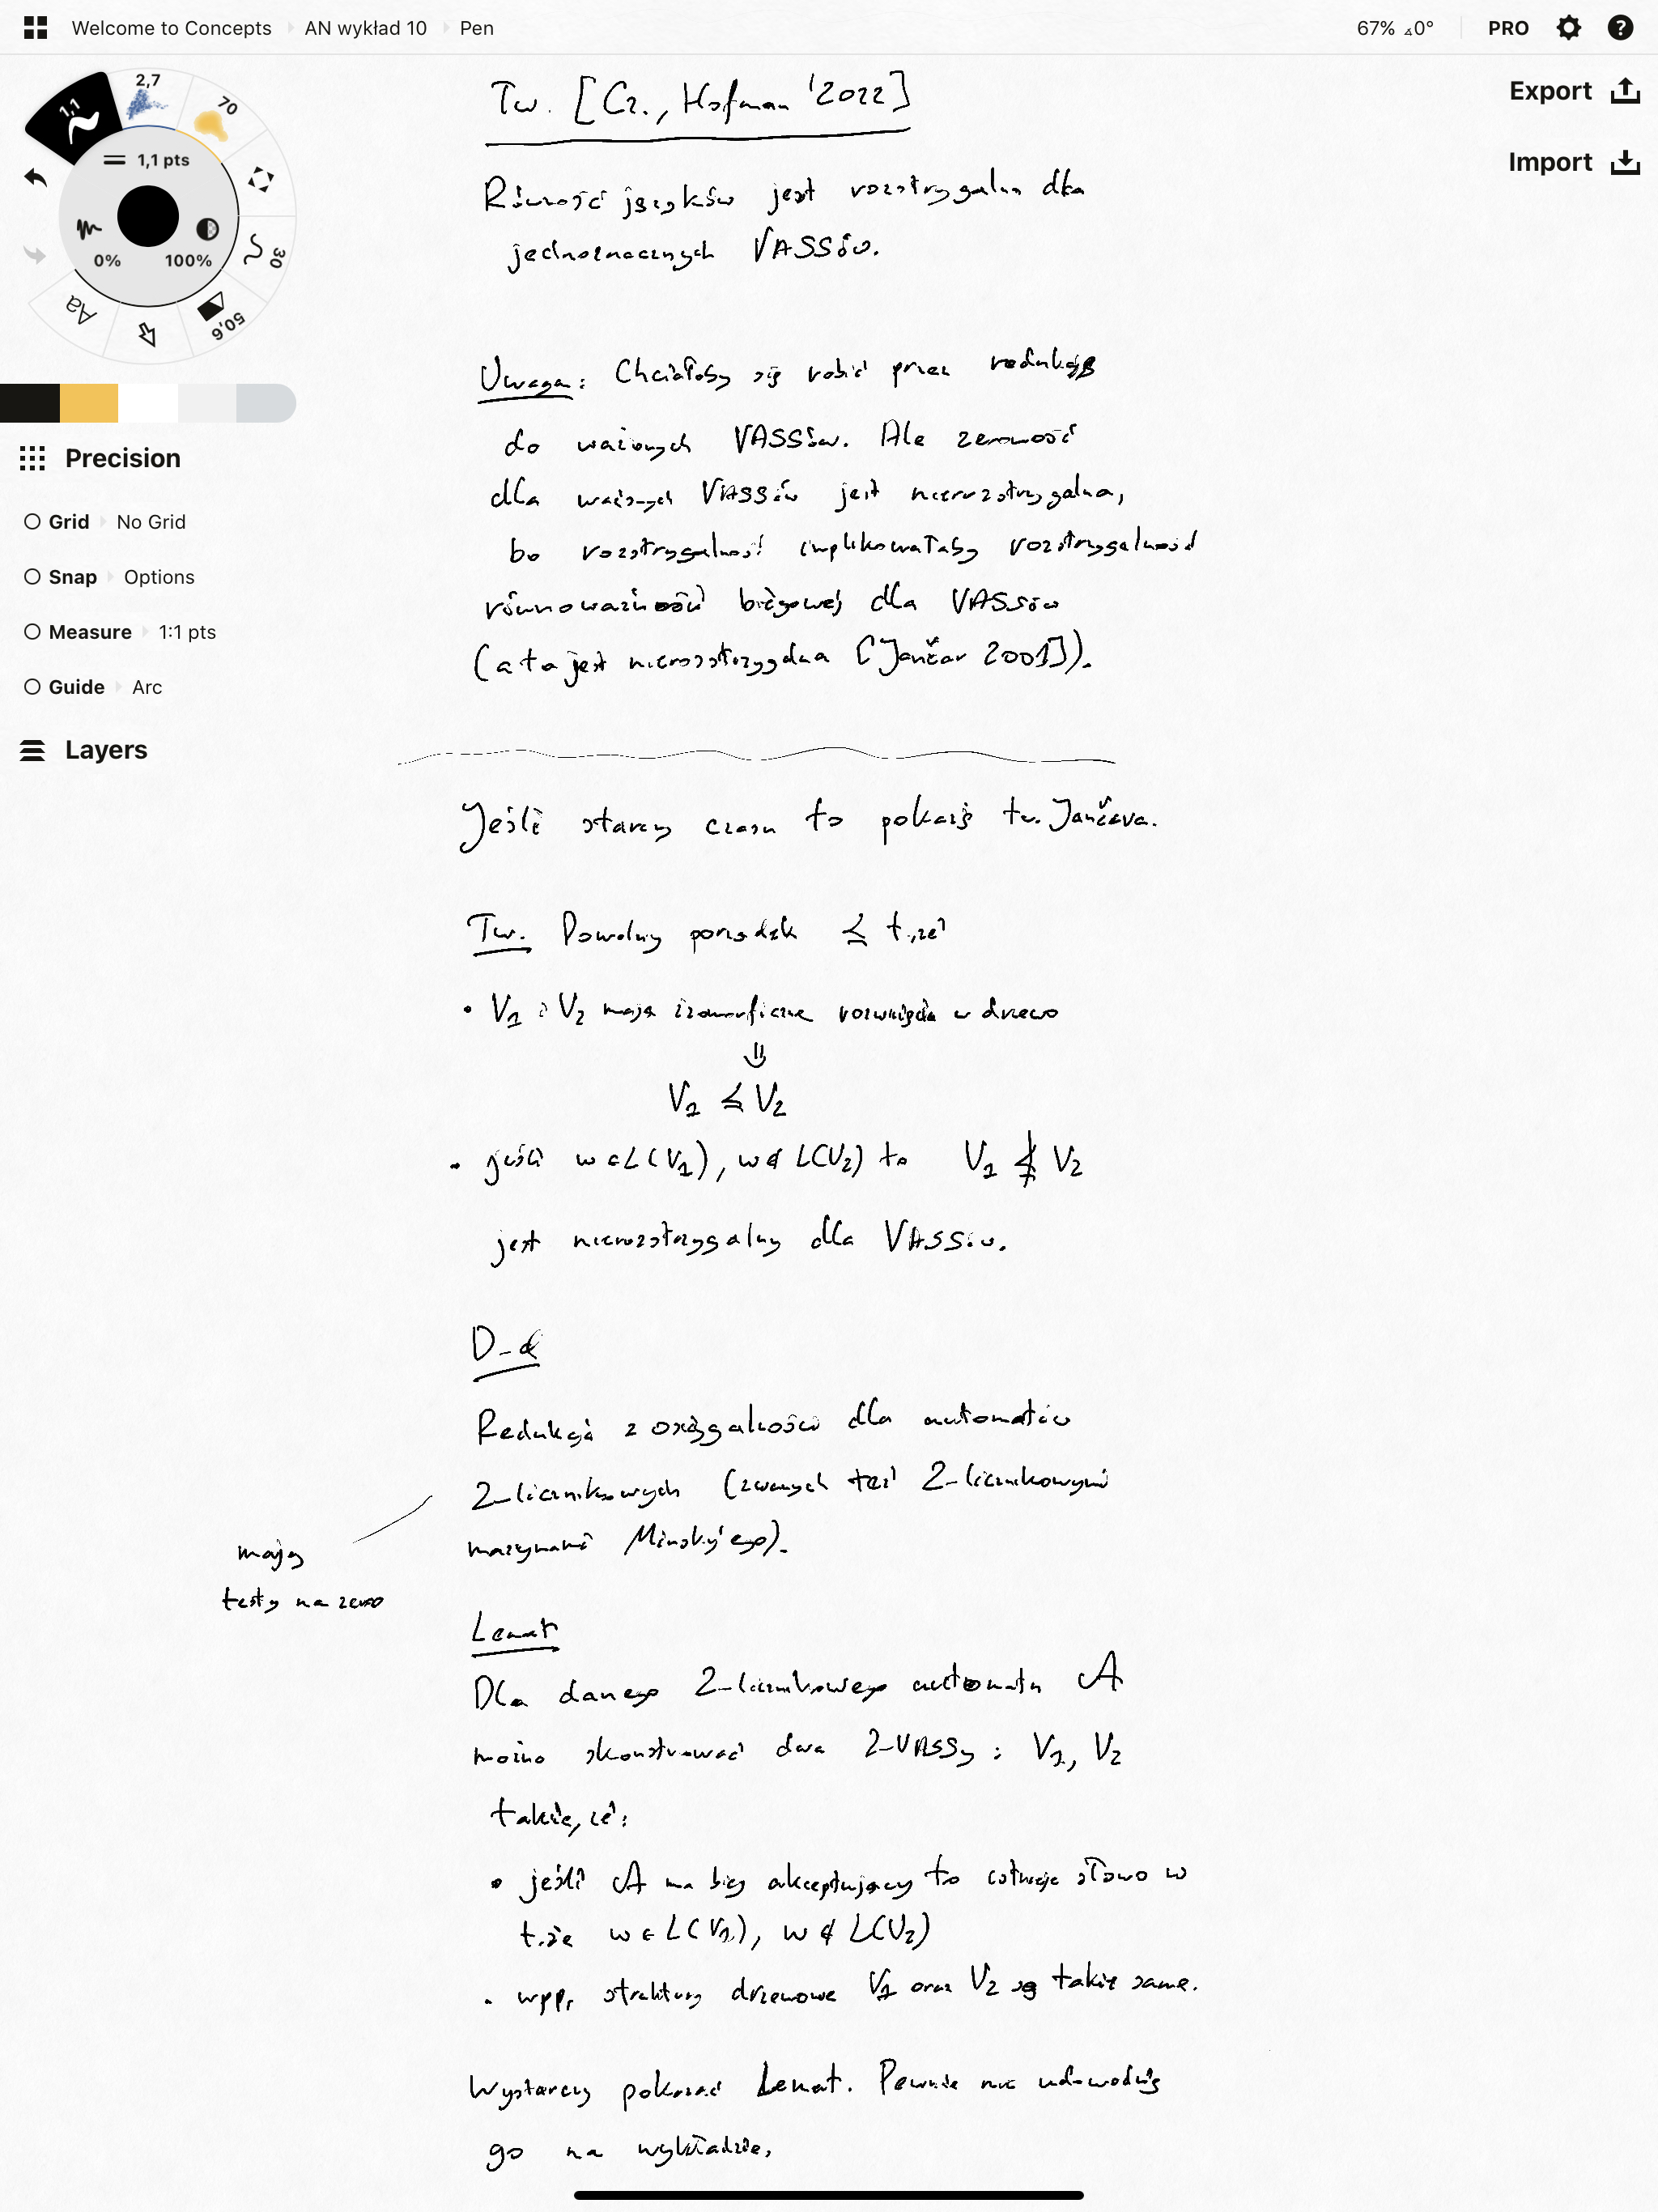 Welcome to Concepts
AN wykład 10
Pen
67% ⊿0°
PRO
Export
Import
1.1
2,7
70
1,1 pts
0%
100%
30
50,6
Aa
Precision
Grid
No Grid
Snap
Options
Measure
1:1 pts
Guide
Arc
Layers
Tw. [Cz., Hofman '2022]
Równość języków jest rozstrzygalna dla
jednoznacznych VASSów.
Uwaga: Chciałoby się robić przez redukcję
do ważonych VASSów. Ale zerowość
dla ważonych VASSów jest nierozstrzygalna,
bo rozstrzygalność implikowałaby rozstrzygalność
równoważności biegowej dla VASSów
(a ta jest nierozstrzygalna [Jančar 2001]).
Jeśli starczy czasu to pokażę tw. Jančara.
Tw. Dowolny porządek ≤ t.że
• V1 i V2 mają izomorficzne rozwinięcia w drzewo
⇓
V1 ≤ V2
• jeśli w ∈ L(V1), w ∉ L(V2) to V1 ≰ V2
jest nierozstrzygalny dla VASSów.
D-d
Redukcja z osiągalności dla automatów
2-licznikowych (zwanych też 2-licznikowymi
maszynami Minsky'ego).
mają
testy na zero
Lemat
Dla danego 2-licznikowego automatu A
można skonstruować dwa 2-VASSy: V1, V2
takie, że:
• jeśli A ma bieg akceptujący to istnieje słowo w
t.że w ∈ L(V1), w ∉ L(V2)
• wpp. struktury drzewowe V1 oraz V2 są takie same.
Wystarczy pokazać Lemat. Pewnie nie udowodnię
go na wykładzie,